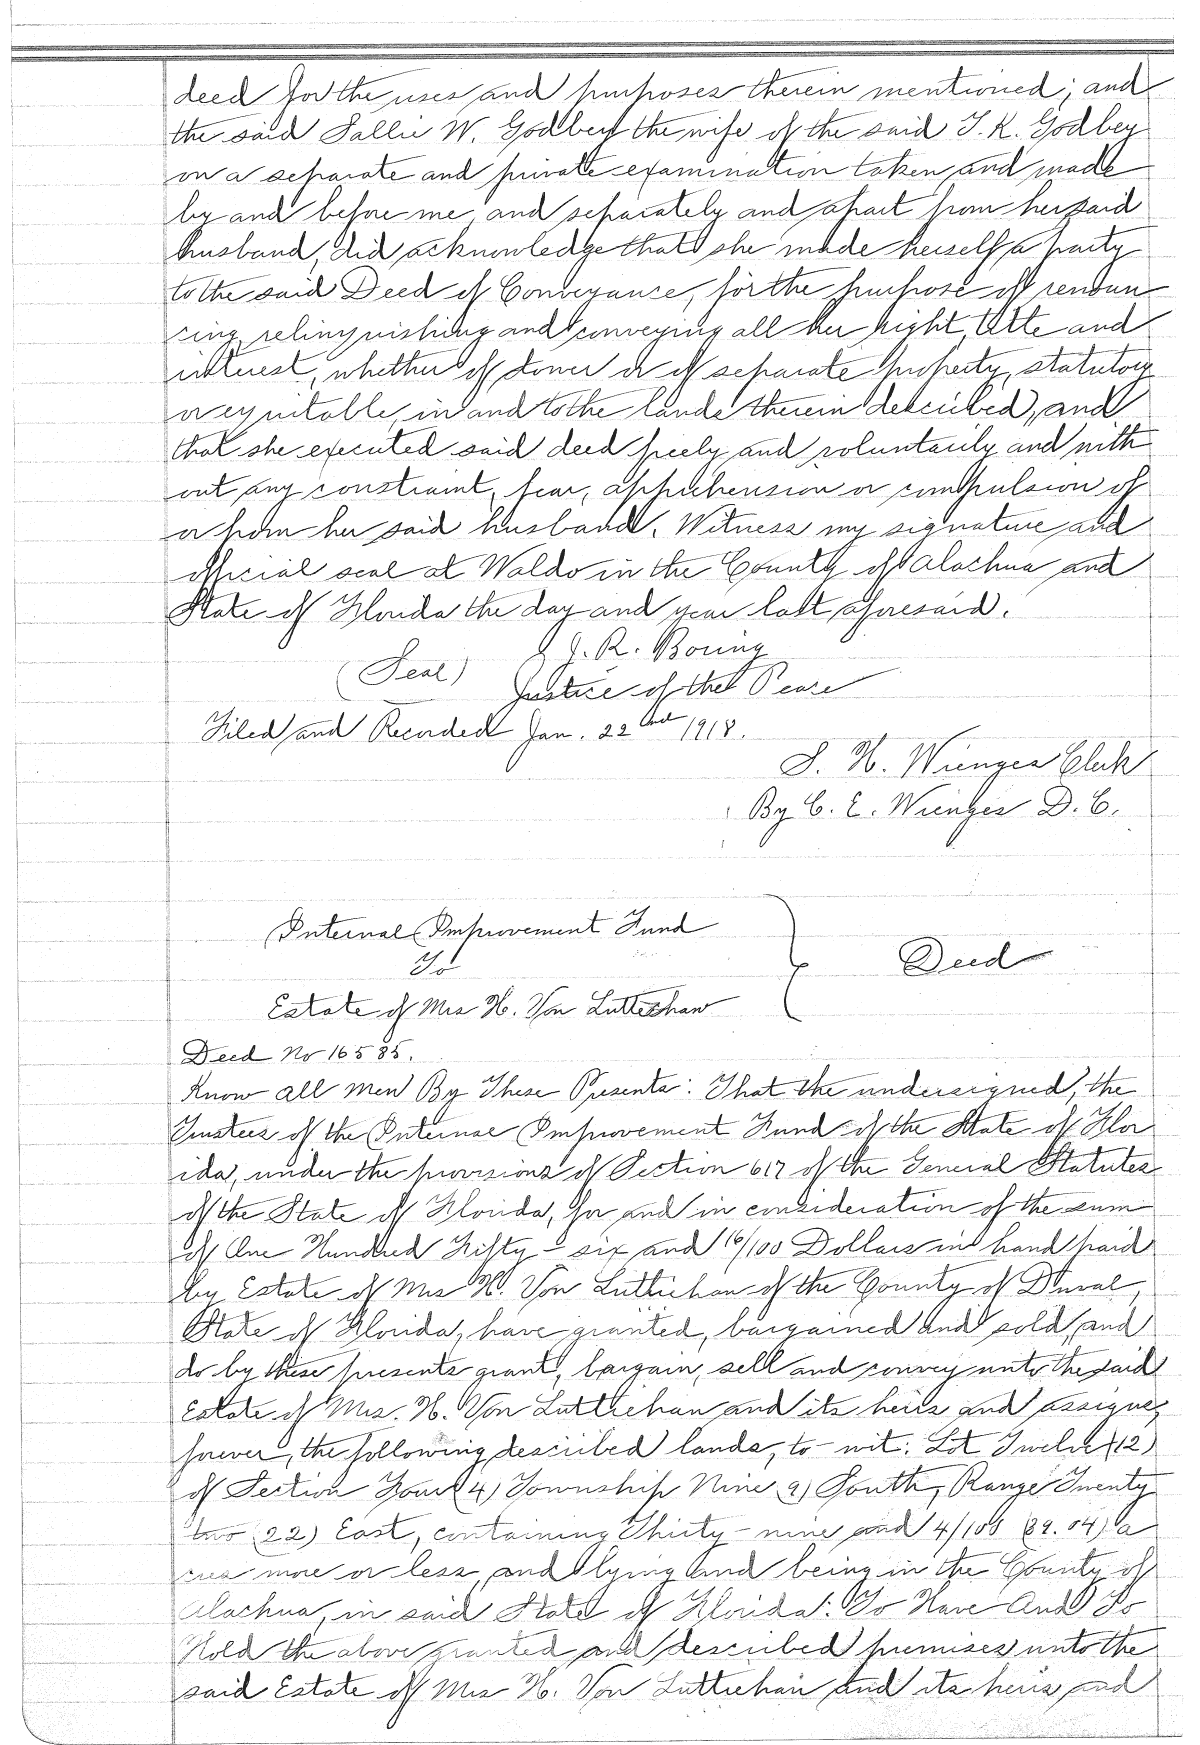 deed for the uses and purposes therein mentioned; and
the said Sallie W. Godbey the wife of the said T. K. Godbey
on a separate and private examination taken and made
by and before me, and separately and apart from her said
husband, did acknowledge that she made herself a party
to the said Deed of Conveyance, for the purpose of renoun
cing, relinquishing and conveying all her right, title and
interest, whether of dower or of separate property, statutory
or equitable, in and to the lands therein described, and
that she executed said deed freely and voluntarily and with
out any constraint, fear, apprehension or compulsion of
or from her said husband. Witness my signature and
official seal at Waldo in the County of Alachua and
State of Florida the day and year last aforesaid.
J. R. Boring
(Seal) Justice of the Peace
Filed and Recorded Jan. 22nd 1918.
S. H. Wienges Clerk
By C. E. Wienges D. C.
Internal Improvement Fund
To
Deed
Estate of Mrs H. Von Luttichaw
Deed No 16585.
Know All Men By These Presents: That the undersigned, the
Trustees of the Internal Improvement Fund of the State of Flor
ida, under the provisions of Section 617 of the General Statutes
of the State of Florida, for and in consideration of the sum
of One Hundred Fifty-six and 16/100 Dollars in hand paid
by Estate of Mrs H. Von Luttichau of the County of Duval,
State of Florida, have granted, bargained and sold, and
do by these presents grant, bargain, sell and convey unto the said
Estate of Mrs. H. Von Luttichau and its heirs and assigns,
forever, the following described lands, to-wit: Lot Twelve (12)
of Section Four (4) Township Nine (9) South, Range Twenty
two (22) East, containing Thirty-nine and 4/100 (39.04) a
cres more or less, and lying and being in the County of
Alachua, in said State of Florida: To Have And To
Hold the above granted and described premises unto the
said Estate of Mrs H. Von Luttichau and its heirs and